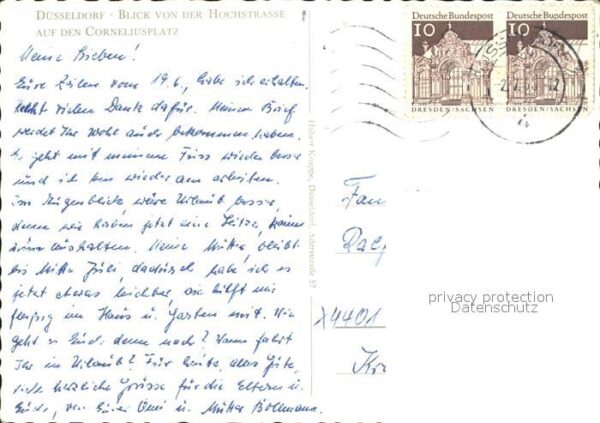 DÜSSELDORF · BLICK VON DER HOCHSTRASSE
AUF DEN CORNELIUSPLATZ
Meine Lieben!
Eure Zeilen vom 19.6., habe ich erhalten.
Recht vielen Dank dafür. Meinen Brief
werdet Ihr wohl auch bekommen haben.
Es geht mit meinem Fuss wieder besser
und ich bin wieder am arbeiten.
Im Augenblick wäre Urlaub besser,
denn wir haben jetzt eine Hitze, kaum
zum aushalten. Meine Mutter bleibt
bis Mitte Juli, dadurch habe ich es
jetzt etwas leichter, sie hilft mir
fleissig im Haus u. Garten mit. Wie
geht es Euch denn noch? Wann fahrt
Ihr in Urlaub? Für heute, alles Gute,
viele herzliche Grüsse für die Eltern u.
Euch, von Eurer u. Mutter Bollmann.
Hubert Knippe, Düsseldorf, 52
Deutsche Bundespost
10
DRESDEN/SACHSEN
Deutsche Bundespost
10
DRESDEN/SACHSEN
4401
privacy protection
Datenschutz